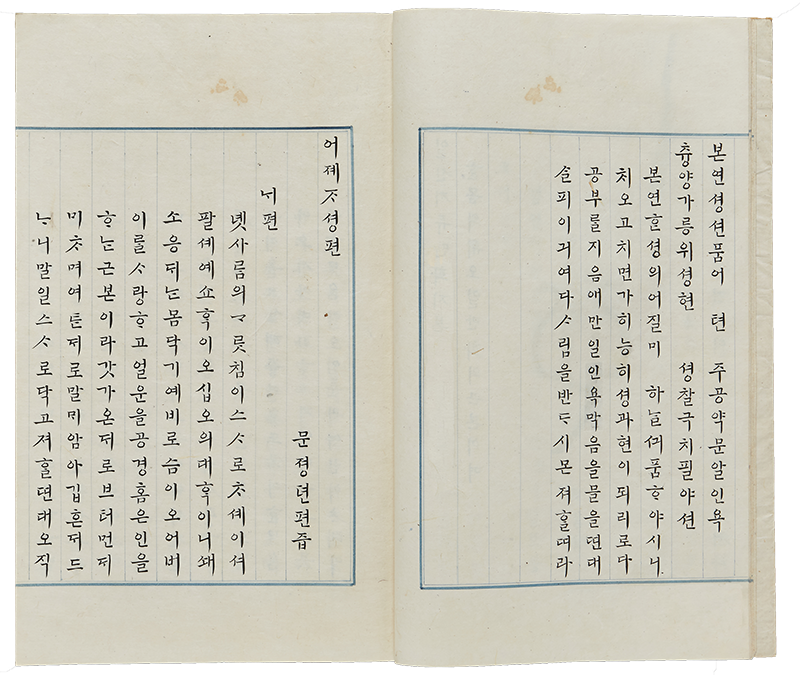 본연셩션품어 텬 주공약문알인욕
츙양가릉위셩현 셩찰극치필야션
본연ᄒᆞᆫ셩의어질미 하ᄂᆞᆯᄭᅴ품ᄒᆞ야시니
치오고치면가히능히셩과현이되리로다
공부ᄅᆞᆯ지음애만일인욕막음을믈을딘대
ᄉᆞᆯ피이긔여다ᄉᆞ림을반ᄃᆞ시몬져ᄒᆞᆯᄯᅵ라
어졔ᄌᆞ셩편
ᄂᆡ편
문졍뎐편즙
녯사ᄅᆞᆷ의ᄀᆞᄅᆞ침이스ᄉᆞ로ᄎᆞ셰이셔
팔셰예쇼ᄒᆞᆨ이오십오의대ᄒᆞᆨ이니ᄡᅢ
소응ᄃᆡᄂᆞᆫ몸닥기예비로슴이오어버
이ᄅᆞᆯᄉᆞ랑ᄒᆞ고얼운을공경홈은인을
ᄒᆞᄂᆞᆫ근본이라갓가온ᄃᆡ로브터먼ᄃᆡ
미ᄎᆞ며여튼ᄃᆡ로말ᄆᆡ암아깁흔ᄃᆡ드
ᄂᆞ니말일스ᄉᆞ로닥고져ᄒᆞᆯ딘대오직